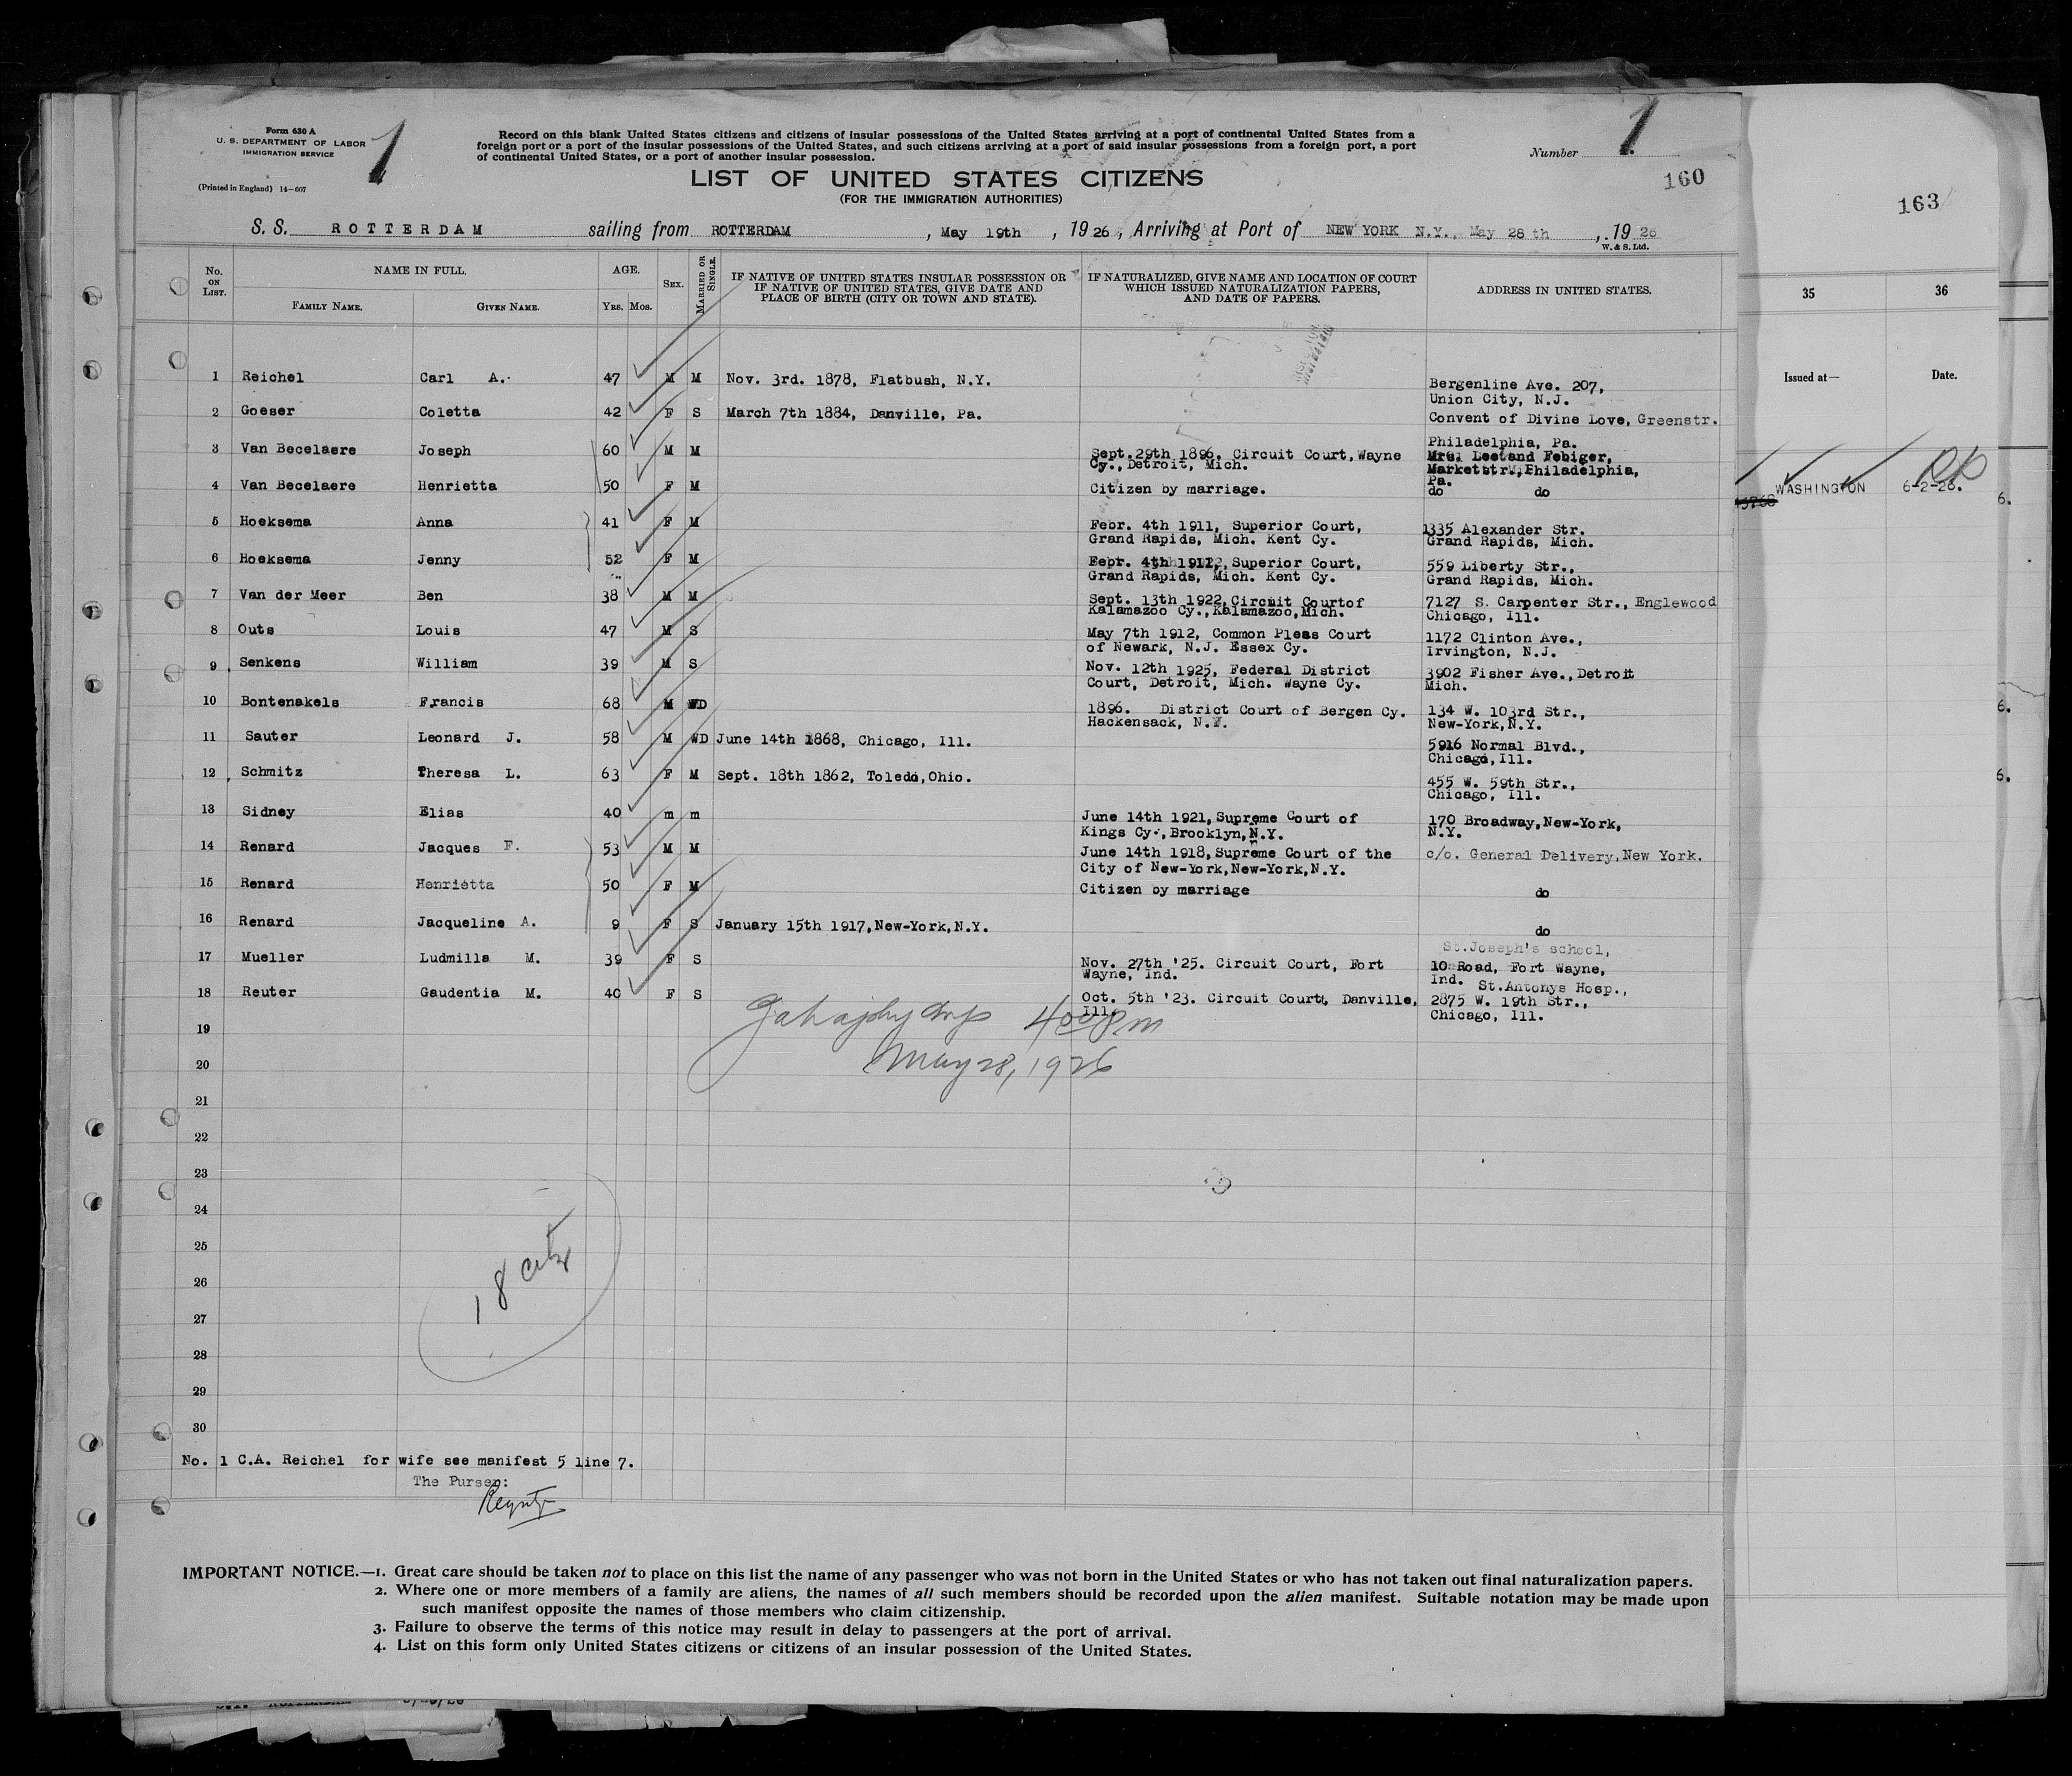 Form 630 A
U. S. DEPARTMENT OF LABOR
IMMIGRATION SERVICE
(Printed in England) 14-607
1
Record on this blank United States citizens and citizens of insular possessions of the United States arriving at a port of continental United States from a
foreign port or a port of the insular possessions of the United States, and such citizens arriving at a port of said insular possessions from a foreign port, a port
of continental United States, or a port of another insular possession.
Number 1
160
163
LIST OF UNITED STATES CITIZENS
(FOR THE IMMIGRATION AUTHORITIES)
S. S. ROTTERDAM sailing from ROTTERDAM, May 19th, 1926, Arriving at Port of NEW YORK N.Y., May 28 th, 1926
W. & S. Ltd.
No. ON LIST. NAME IN FULL. FAMILY NAME. GIVEN NAME. AGE. YRS. MOS. SEX. MARRIED OR SINGLE. IF NATIVE OF UNITED STATES INSULAR POSSESSION OR IF NATIVE OF UNITED STATES, GIVE DATE AND PLACE OF BIRTH (CITY OR TOWN AND STATE). IF NATURALIZED, GIVE NAME AND LOCATION OF COURT WHICH ISSUED NATURALIZATION PAPERS, AND DATE OF PAPERS. ADDRESS IN UNITED STATES.
35 36
Issued at— Date.
1 Reichel Carl A. 47 M M Nov. 3rd. 1878, Flatbush, N.Y. Bergenline Ave. 207,
Union City, N.J.
2 Goeser Coletta 42 F S March 7th 1884, Danville, Pa. Convent of Divine Love, Greenstr.
Philadelphia, Pa.
3 Van Becelaere Joseph 60 M M Sept. 29th 1896, Circuit Court, Wayne
Cy., Detroit, Mich.
Mrs. Leeland Febiger,
Marketstr., Philadelphia,
Pa.
4 Van Becelaere Henrietta 50 F M Citizen by marriage. do do
WASHINGTON 6-2-26.
5 Hoeksema Anna 41 F M Febr. 4th 1911, Superior Court, 1335 Alexander Str.
Grand Rapids, Mich. Kent Cy. Grand Rapids, Mich.
6 Hoeksema Jenny 52 F M Febr. 4th 1912, Superior Court, 559 Liberty Str.,
Grand Rapids, Mich. Kent Cy. Grand Rapids, Mich.
7 Van der Meer Ben 38 M M Sept. 13th 1922, Circuit Courtof 7127 S. Carpenter Str., Englewood
Kalamazoo Cy., Kalamazoo, Mich. Chicago, Ill.
8 Outs Louis 47 M S May 7th 1912, Common Pleas Court 1172 Clinton Ave.,
of Newark, N.J. Essex Cy. Irvington, N.J.
9 Senkens William 39 M S Nov. 12th 1925, Federal District 3902 Fisher Ave., Detroit
Court, Detroit, Mich. Wayne Cy. Mich.
10 Bontenakels Francis 68 M WD 1896. District Court of Bergen Cy. 134 W. 103rd Str.,
Hackensack, New-York, N.Y.
11 Sauter Leonard J. 58 M WD June 14th 1868, Chicago, Ill. 5916 Normal Blvd.,
Chicago, Ill.
12 Schmitz Theresa L. 63 F M Sept. 18th 1862, Toledo, Ohio. 455 W. 59th Str.,
Chicago, Ill.
13 Sidney Elias 40 m m June 14th 1921, Supreme Court of 170 Broadway, New-York,
Kings Cy., Brooklyn, N.Y. N.Y.
14 Renard Jacques F. 53 M M June 14th 1918, Supreme Court of the c/o. General Delivery, New York.
City of New-York, New-York, N.Y.
15 Renard Henrietta 50 F M Citizen by marriage do
16 Renard Jacqueline A. 9 F S January 15th 1917, New-York, N.Y. do
17 Mueller Ludmilla M. 39 F S Nov. 27th '25. Circuit Court, Fort St. Joseph's school,
Wayne, Ind. 10 Road, Fort Wayne,
Ind.
18 Reuter Gaudentia M. 40 F S Oct. 5th '23. Circuit Court, Danville, St. Antonys Hosp.,
Ill. 2875 W. 19th Str.,
Chicago, Ill.
19 400 Pm
20 May 28, 1926
21
22
23
24
25
26
27
28
29
30
18 citz
No. 1 C.A. Reichel for wife see manifest 5 line 7.
The Purser:
IMPORTANT NOTICE.—1. Great care should be taken not to place on this list the name of any passenger who was not born in the United States or who has not taken out final naturalization papers.
2. Where one or more members of a family are aliens, the names of all such members should be recorded upon the alien manifest. Suitable notation may be made upon
such manifest opposite the names of those members who claim citizenship.
3. Failure to observe the terms of this notice may result in delay to passengers at the port of arrival.
4. List on this form only United States citizens or citizens of an insular possession of the United States.